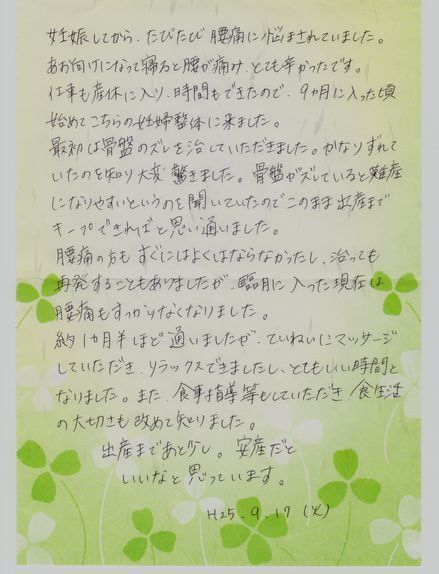 妊娠してから、たびたび腰痛に悩まされていました。
あお向けになって寝ると腰が痛み、とても辛かったです。
仕事も産休に入り、時間もできたので、9ヵ月に入った頃
始めてこちらの妊婦整体に来ました。
最初は骨盤のズレを治していただきました。かなりずれて
いたのを知り大変驚きました。骨盤がズレしていると難産
になりやすいというのを聞いていたのでこのまま出産まで
キープできればと思い通いました。
腰痛の方もすぐにはよくはならなかったし、治っても
再発することもありましたが、臨月に入った現在は
腰痛もすっかりなくなりました。
約1カ月半ほど通いましたが、ていねいにマッサージ
していただき、リラックスできましたし、とてもいい時間と
なりました。また、食事指導等もしていただき食生活
の大切さも改めて知りました。
出産まであと少し。安産だと
いいなと思っています。
H25.9.17(火)